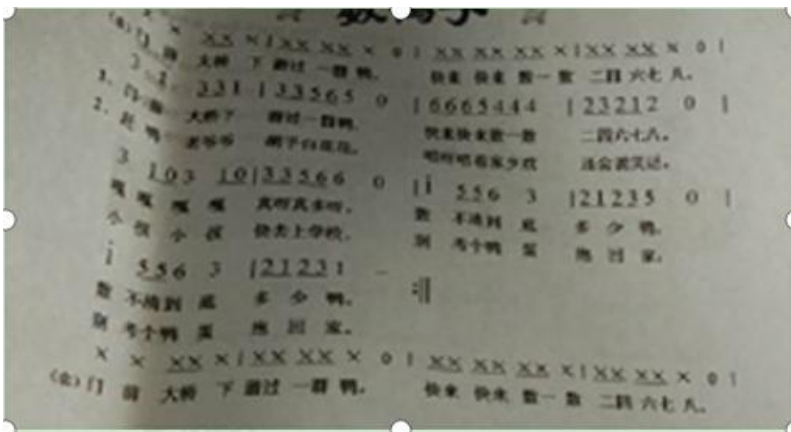 数鸭子
× × ×× × | ×× ×× × 0 | ×× ×× ×× × | ×× ×× × 0 |
(白)门 前 大桥 下 游过 一群 鸭。 快来 快来 数一 数 二四 六七 八。
3 1 3 3 1 | 3 3 5 6 5 0 | 6 6 6 5 4 4 4 | 2 3 2 1 2 0 |
1. 门 前 大桥下 游过一群鸭, 快来快来数一数 二四六七八。
2. 赶 鸭 老爷爷 胡子白花花, 唱呀唱着家乡戏 还会说笑话。
3 1 0 3 1 0 | 3 3 5 6 6 0 | i 5 5 6 3 | 2 1 2 3 5 0 |
嘎 嘎 嘎 嘎 真呀真多呀, 数 不清到 底 多 少 鸭,
小 孩 小 孩 快去上学校, 别 考个鸭 蛋 抱 回 家,
i 5 5 6 3 | 2 1 2 3 1 – :||
数 不清到 底 多 少 鸭。
别 考个鸭 蛋 抱 回 家。
× × ×× × | ×× ×× × 0 | ×× ×× ×× × | ×× ×× × 0 |
(白)门 前 大桥 下 游过 一群 鸭。 快来 快来 数一 数 二四 六七 八。